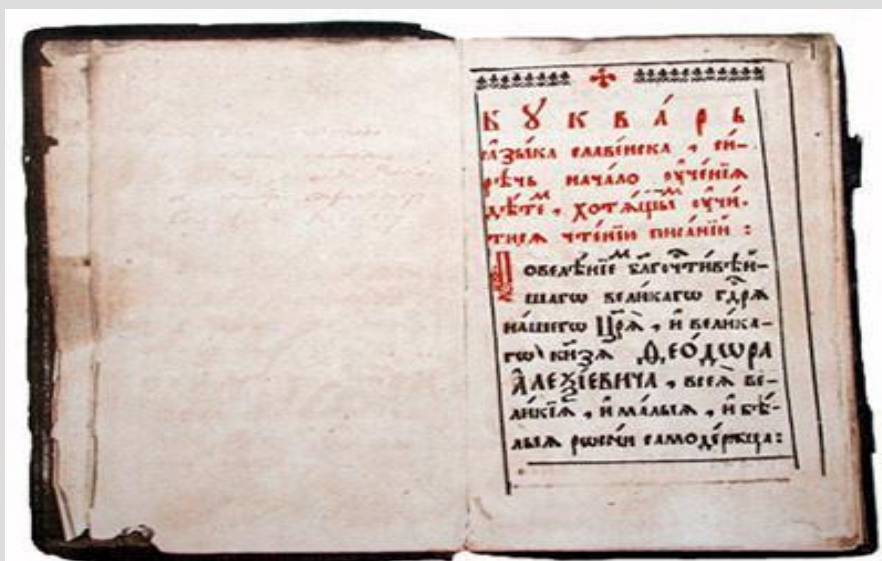 БꙊКВА́РЬ
ꙗ҆зы́ка славе́нска, си́-
рѣчь нача́ло ᲂу҆че́нїѧ
дѣ́теⷨ, хотѧ́щыⷨ ᲂу҆чи́-
тисѧ чте́нїи писа́нїй :
Повелѣ́нїеⷨ бл҃гочти́вѣй-
шагѡ вели́кагѡ гдⷭ҇рѧ
на́шегѡ Цр҃ѧ̀, и҆ вели́ка-
гѡ кн҃зѧ Ѳео́дѡра
А҆леѯі́евича, всеѧ̀ ве-
ли́кїѧ, и҆ ма́лыѧ, и҆ бѣ́-
лыѧ рѡссі́и самоде́ржца :